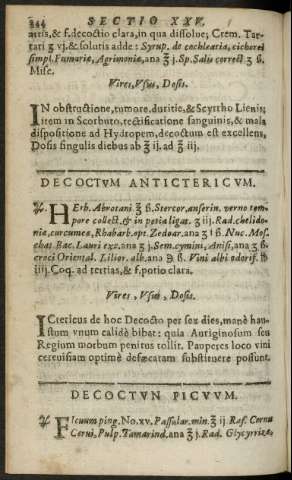 244 SECTIO XXV.
attis, & f. decoctio clara, in qua dissolue; Crem. Tar-
tari ʒ vj. & solutis adde: Syrup. de cochlearia, cichorei
simpl. Fumariæ, Agrimoniæ, ana ℥ j. Sp. Salis correct ʒ ß.
Misc.
Vires, Vsus, Dosis.
IN obstructione, tumore, duritie, & Scyrrho Lienis;
item in Scorbuto, rectificatione sanguinis, & mala
dispositione ad Hydropem, decoctum est excellens,
Dosis singulis diebus ab ℥ ij. ad ℥ iij.
DECOCTVM ANTICTERICVM.
℞. HErb. Abrotani ℥ ß. Stercor. anserin. verno tem-
pore collect. & in petia ligat. ʒ iij. Rad. chelido-
niæ, curcumæ, Rhabarb. opt. Zedoar. ana ʒ i ß. Nuc. Mos.
chat. Bac. Lauri exc. ana ʒ j. Sem. cymini, Anisi, ana ʒ ß.
croci Oriental. Lilior. alb. ana ℈ ß. Vini albi odorif. ℔
iiij. Coq. ad tertias, & f. potio clara.
Vires, Vsus, Dosis.
ICtericus de hoc Decocto per sex dies, manè hau-
stum vnum calidè bibat: quia Auriginosum seu
Regium morbum penitus tollit. Pauperes loco vini
ceruisiam optimè defæcatam substituere possunt.
DECOCTVN PICVVM.
℞. FIcuum ping. No. xv. Passular. min. ℥ ij Ras. Cornu
Cerui, Pulp. Tamarind. ana ℥ j. Rad. Glycyrrizæ,